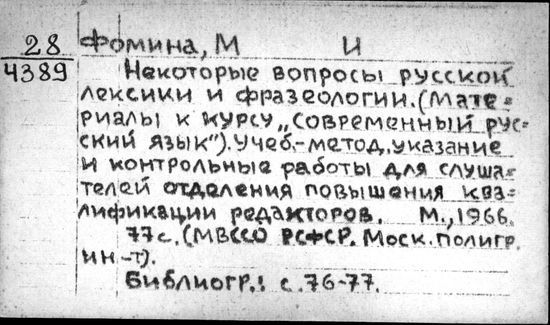 28 Фомина, М И
4389
Некоторые вопросы русской
лексики и фразеологии. (Мате=
риалы к курсу „Современный рус=
ский язык"). Учеб.-метод. указание
и контрольные работы для слуша=
телей отделения повышения ква=
лификации редакторов. М., 1966.
77 с. (МВССО РСФСР. Моск. полигр.
ин-т).
Библиогр.: с. 76-77.